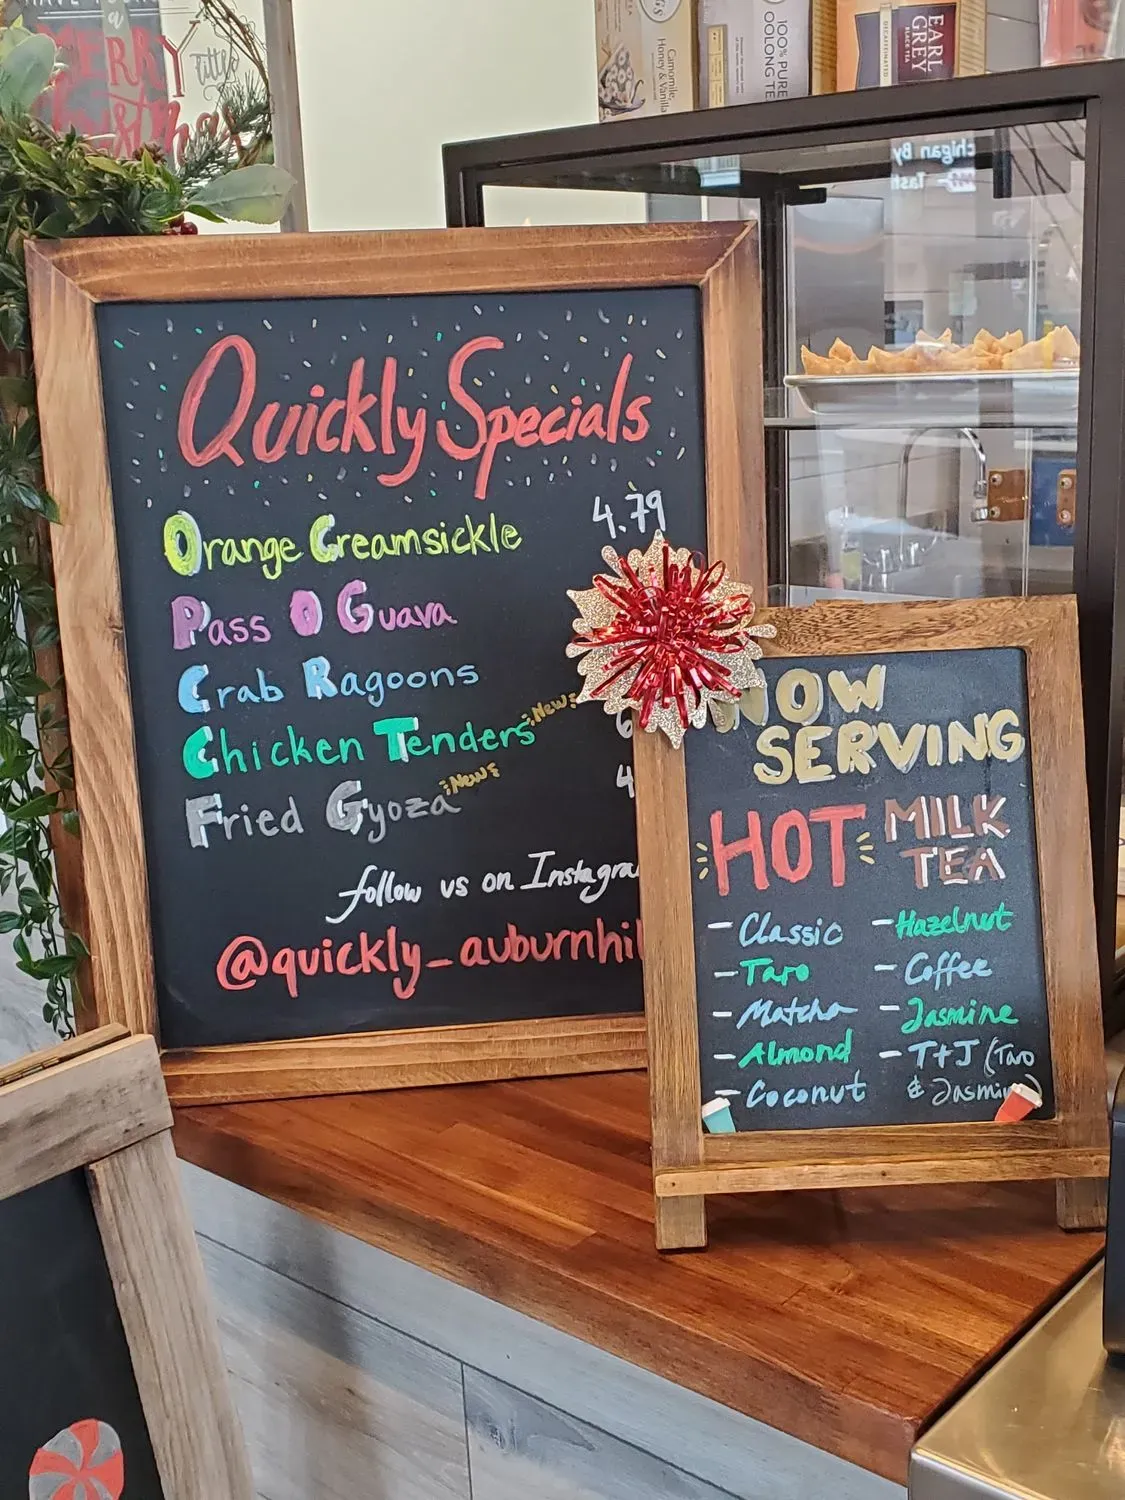 MERRY
little
Christmas
Camomile,
Honey & Vanilla
100% PURE
OOLONG TEA
EARL
GREY
BLACK TEA
DECAFFEINATED
Quickly Specials
Orange Creamsickle 4.79
Pass O Guava
Crab Ragoons
Chicken Tenders New 6
Fried Gyoza New 4
follow us on Instagra
@quickly_auburnhil
NOW
SERVING
HOT MILK
TEA
- Classic
- Taro
- Matcha
- Almond
- Coconut
- Hazelnut
- Coffee
- Jasmine
- T+J (Taro
& Jasmine)